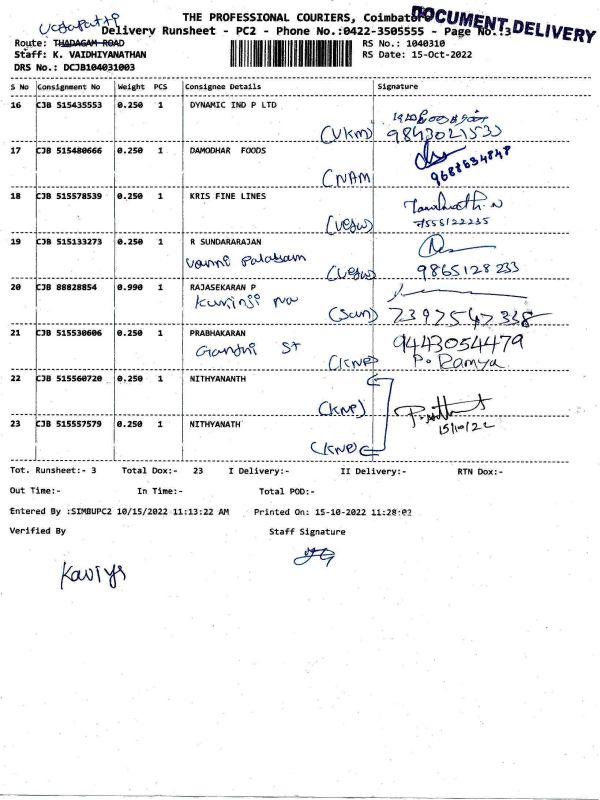 THE PROFESSIONAL COURIERS, Coimbatore
DOCUMENT DELIVERY
Delivery Runsheet - PC2 - Phone No.:0422-3505555 - Page No.:3
Route: THADAGAM ROAD
RS No.: 1040310
Staff: K. VAIDHIYANATHAN
RS Date: 15-Oct-2022
DRS No.: DCJB104031003
S No Consignment No Weight PCS Consignee Details Signature
16 CJB 515435553 0.250 1 DYNAMIC IND P LTD
(VKM) 9843021533
17 CJB 515480666 0.250 1 DAMODHAR FOODS
(NAM) 9688634848
18 CJB 515578539 0.250 1 KRIS FINE LINES
19 CJB 515133273 0.250 1 R SUNDARARAJAN
9865128233
20 CJB 88828854 0.990 1 RAJASEKARAN P
Kurinji Na (Sun)
21 CJB 515530606 0.250 1 PRABHAKARAN
9443054479
Gandhi St (KNP) P. Ramya
22 CJB 515560720 0.250 1 NITHYANANTH
(KNP)
15/10/22
23 CJB 515557579 0.250 1 NITHYANATH
(KNP)
Tot. Runsheet:- 3 Total Dox:- 23 I Delivery:- II Delivery:- RTN Dox:-
Out Time:- In Time:- Total POD:-
Entered By :SIMBUPC2 10/15/2022 11:13:22 AM Printed On: 15-10-2022 11:28:02
Verified By Staff Signature
Kaviya